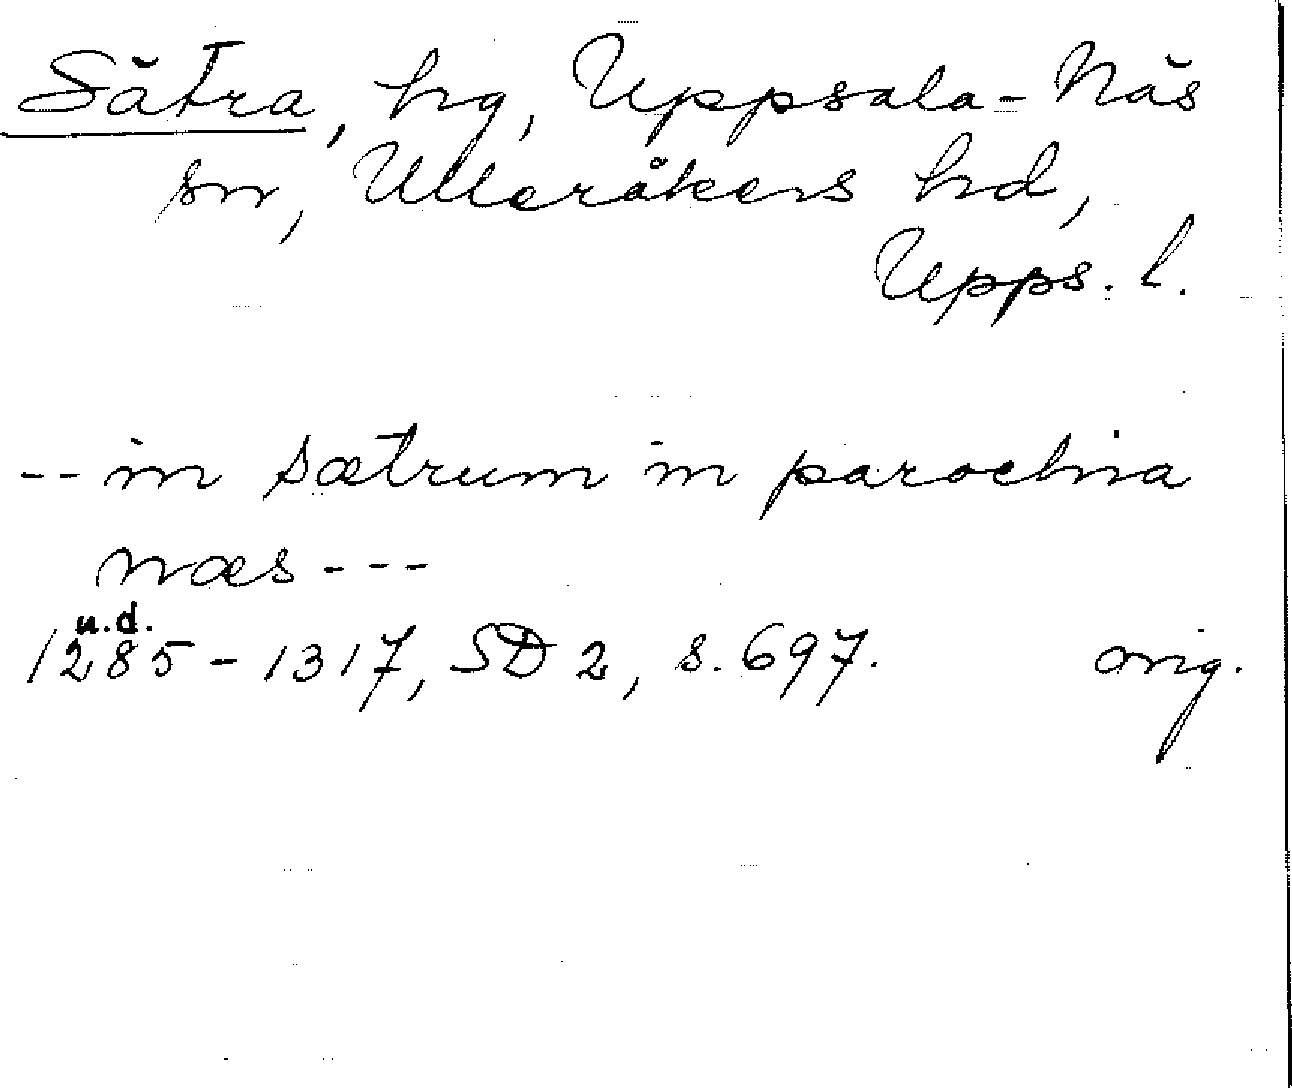 Sätra, hg, Uppsala-Näs
sn, Ulleråkers hd,
Upps. l.
-- in sætrum in parochia
næs ---
u.d.
1285-1317, SD 2, s. 697. orig.